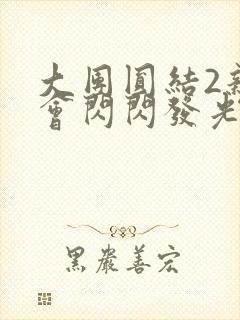 大團圓結2
會閃閃發光
黑嚴善宏